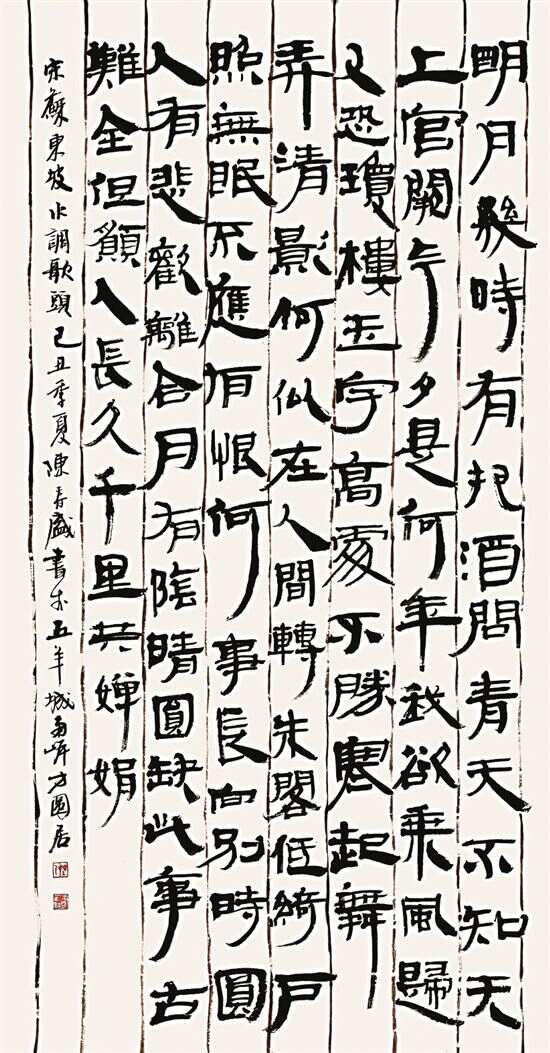 明月幾時有把酒問青天不知天
上宮闕今夕是何年我欲乘風歸
又恐瓊樓玉宇高處不勝寒起舞
弄清影何似在人間轉朱閣低綺戶
照無眠不應有恨何事長向別時圓
人有悲歡離合月有陰晴圓缺此事古
難全但願人長久千里共嬋娟
宋蘇東坡水調歌頭己丑季夏陳盛書於五羊城南方圓居